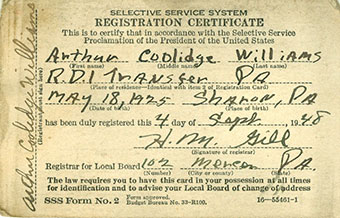 SELECTIVE SERVICE SYSTEM
REGISTRATION CERTIFICATE
This is to certify that in accordance with the Selective Service
Proclamation of the President of the United States
Arthur Coolidge Williams
(First name) (Middle name) (Last name)
R.D.1 Transfer PA
(Place of residence—Identical with item 2 of Registration Card)
MAY 18, 1925 Sharon, PA
(Date of birth) (Place of birth)
has been duly registered this 4 day of Sept. 1948
H. M. Gill
(Signature of registrar)
Registrar for Local Board 102 Mercer PA
(Number) (City or county) (State)
The law requires you to have this card in your possession at all times
for identification and to advise your Local Board of change of address
SSS Form No. 2 Form approved.
Budget Bureau No. 33-R109.
16—55461-1
Arthur Coolidge Williams